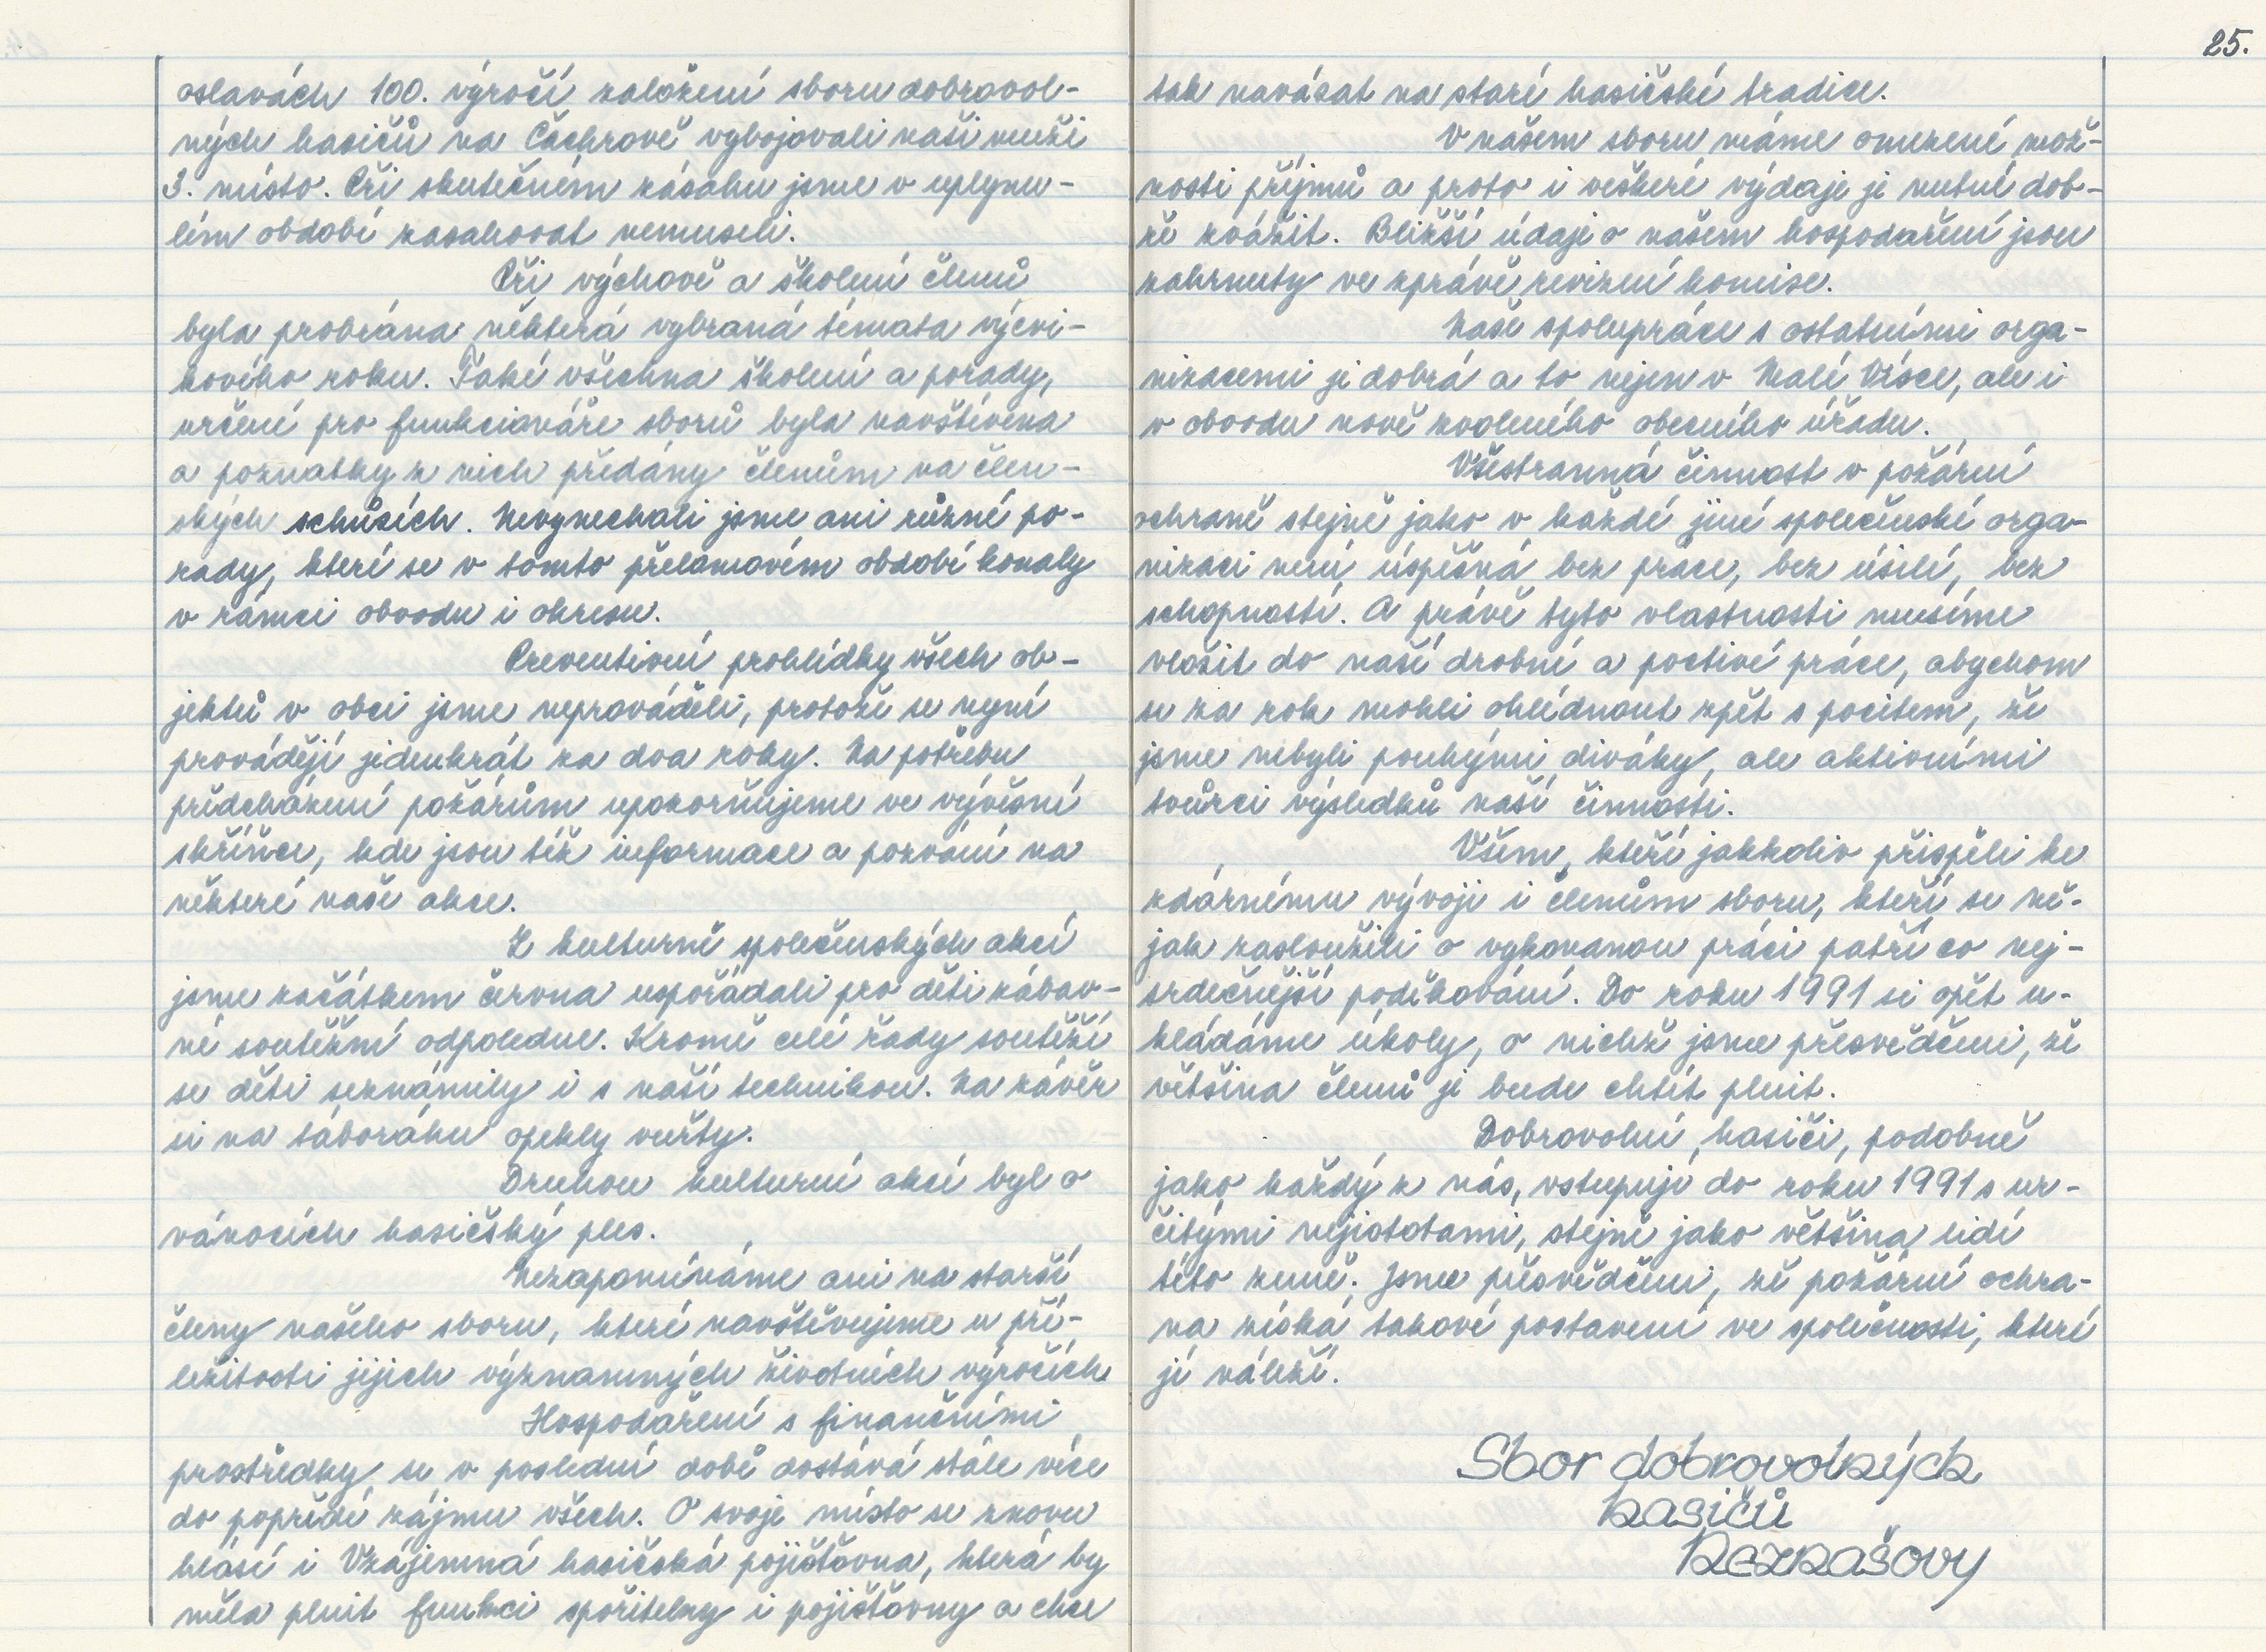 oslavách 100. výročí založení sboru dobrovol-
ných hasičů na Čachrově vybojovali naši muži
3. místo. Při skutečném zásahu jsme v uplynu-
lém období zasahovat nemuseli.
Při výchově a školení členů
byla probrána některá vybraná témata výcvi-
kového roku. Také všechna školení a porady,
určené pro funkcionáře sborů byla navštívena
a poznatky z nich předány členům na člen-
ských schůzích. Nevynechali jsme ani různé po-
rady, které se v tomto přelomovém období konaly
v rámci obvodu i okresu.
Preventivní prohlídky všech ob-
jektů v obci jsme neprováděli, protože se nyní
provádějí jedenkrát za dva roky. Na potřebu
předcházení požárům upozorňujeme ve vývěsní
skříňce, kde jsou též informace a pozvání na
některé naše akce.
Z kulturně společenských akcí
jsme začátkem června uspořádali pro děti zábav-
né soutěžní odpoledne. Kromě celé řady soutěží
se děti seznámily i s naší technikou. Na závěr
si na táboráku opekly vuřty.
Druhou kulturní akcí byl o
vánocích hasičský ples.
Nezapomínáme ani na starší
členy našeho sboru, které navštěvujeme u pří-
ležitosti jejich významných životních výročích
Hospodaření s finančními
prostředky se v poslední době dostává stále více
do popředí zájmu všech. O svoje místo se znovu
hlásí i Vzájemná hasičská pojišťovna, která by
měla plnit funkci spořitelny i pojišťovny a chce
25.
tak navázat na staré hasičské tradice.
V našem sboru máme omezené mož-
nosti příjmů a proto i veškeré výdaje je nutné dob-
ře zvážit. Bližší údaje o našem hospodaření jsou
zahrnuty ve zprávě revizní komise.
Naše spolupráce s ostatními orga-
nizacemi je dobrá a to nejen v Malé Vísce, ale i
v obvodu nově zvoleného obecního úřadu.
Všestranná činnost v požární
ochraně stejně jako v každé jiné společenské orga-
nizaci není úspěšná bez práce, bez úsilí, bez
schopností. A právě tyto vlastnosti musíme
vložit do naší drobné a poctivé práce, abychom
se za rok mohli ohlédnout zpět s pocitem, že
jsme nebyli pouhými diváky, ale aktivními
tvůrci výsledků naší činnosti.
Všem, kteří jakkoliv přispěli ke
zdárnému vývoji i členům sboru, kteří se ně-
jak zasloužili o vykonanou práci patří co nej-
srdečnější poděkování. Do roku 1991 si opět u-
kládáme úkoly, o nichž jsme přesvědčeni, že
většina členů je bude chtít plnit.
Dobrovolní hasiči, podobně
jako každý z nás, vstupují do roku 1991 s ur-
čitými nejistotami, stejně jako většina lidí
této země. Jsme přesvědčeni, že požární ochra-
na získá takové postavení ve společnosti, které
jí náleží.
Sbor dobrovolných
hasičů
Nezkašovy